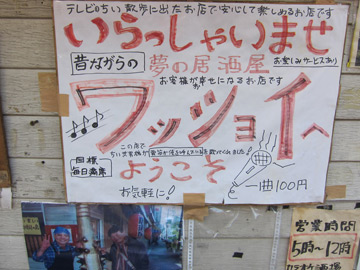 テレビのちい散歩に出たお店で安心して楽しめるお店です
いらっしゃいませ
昔ながらの
夢の居酒屋
お楽しみサービスあり
お客様が幸せになるお店です
ワッショイへ
この店で
ちい武蔵様が
歌ってくれました!
同様
毎日満席
ようこそ
お気軽に!
一曲100円
営業時間
5時〜12時